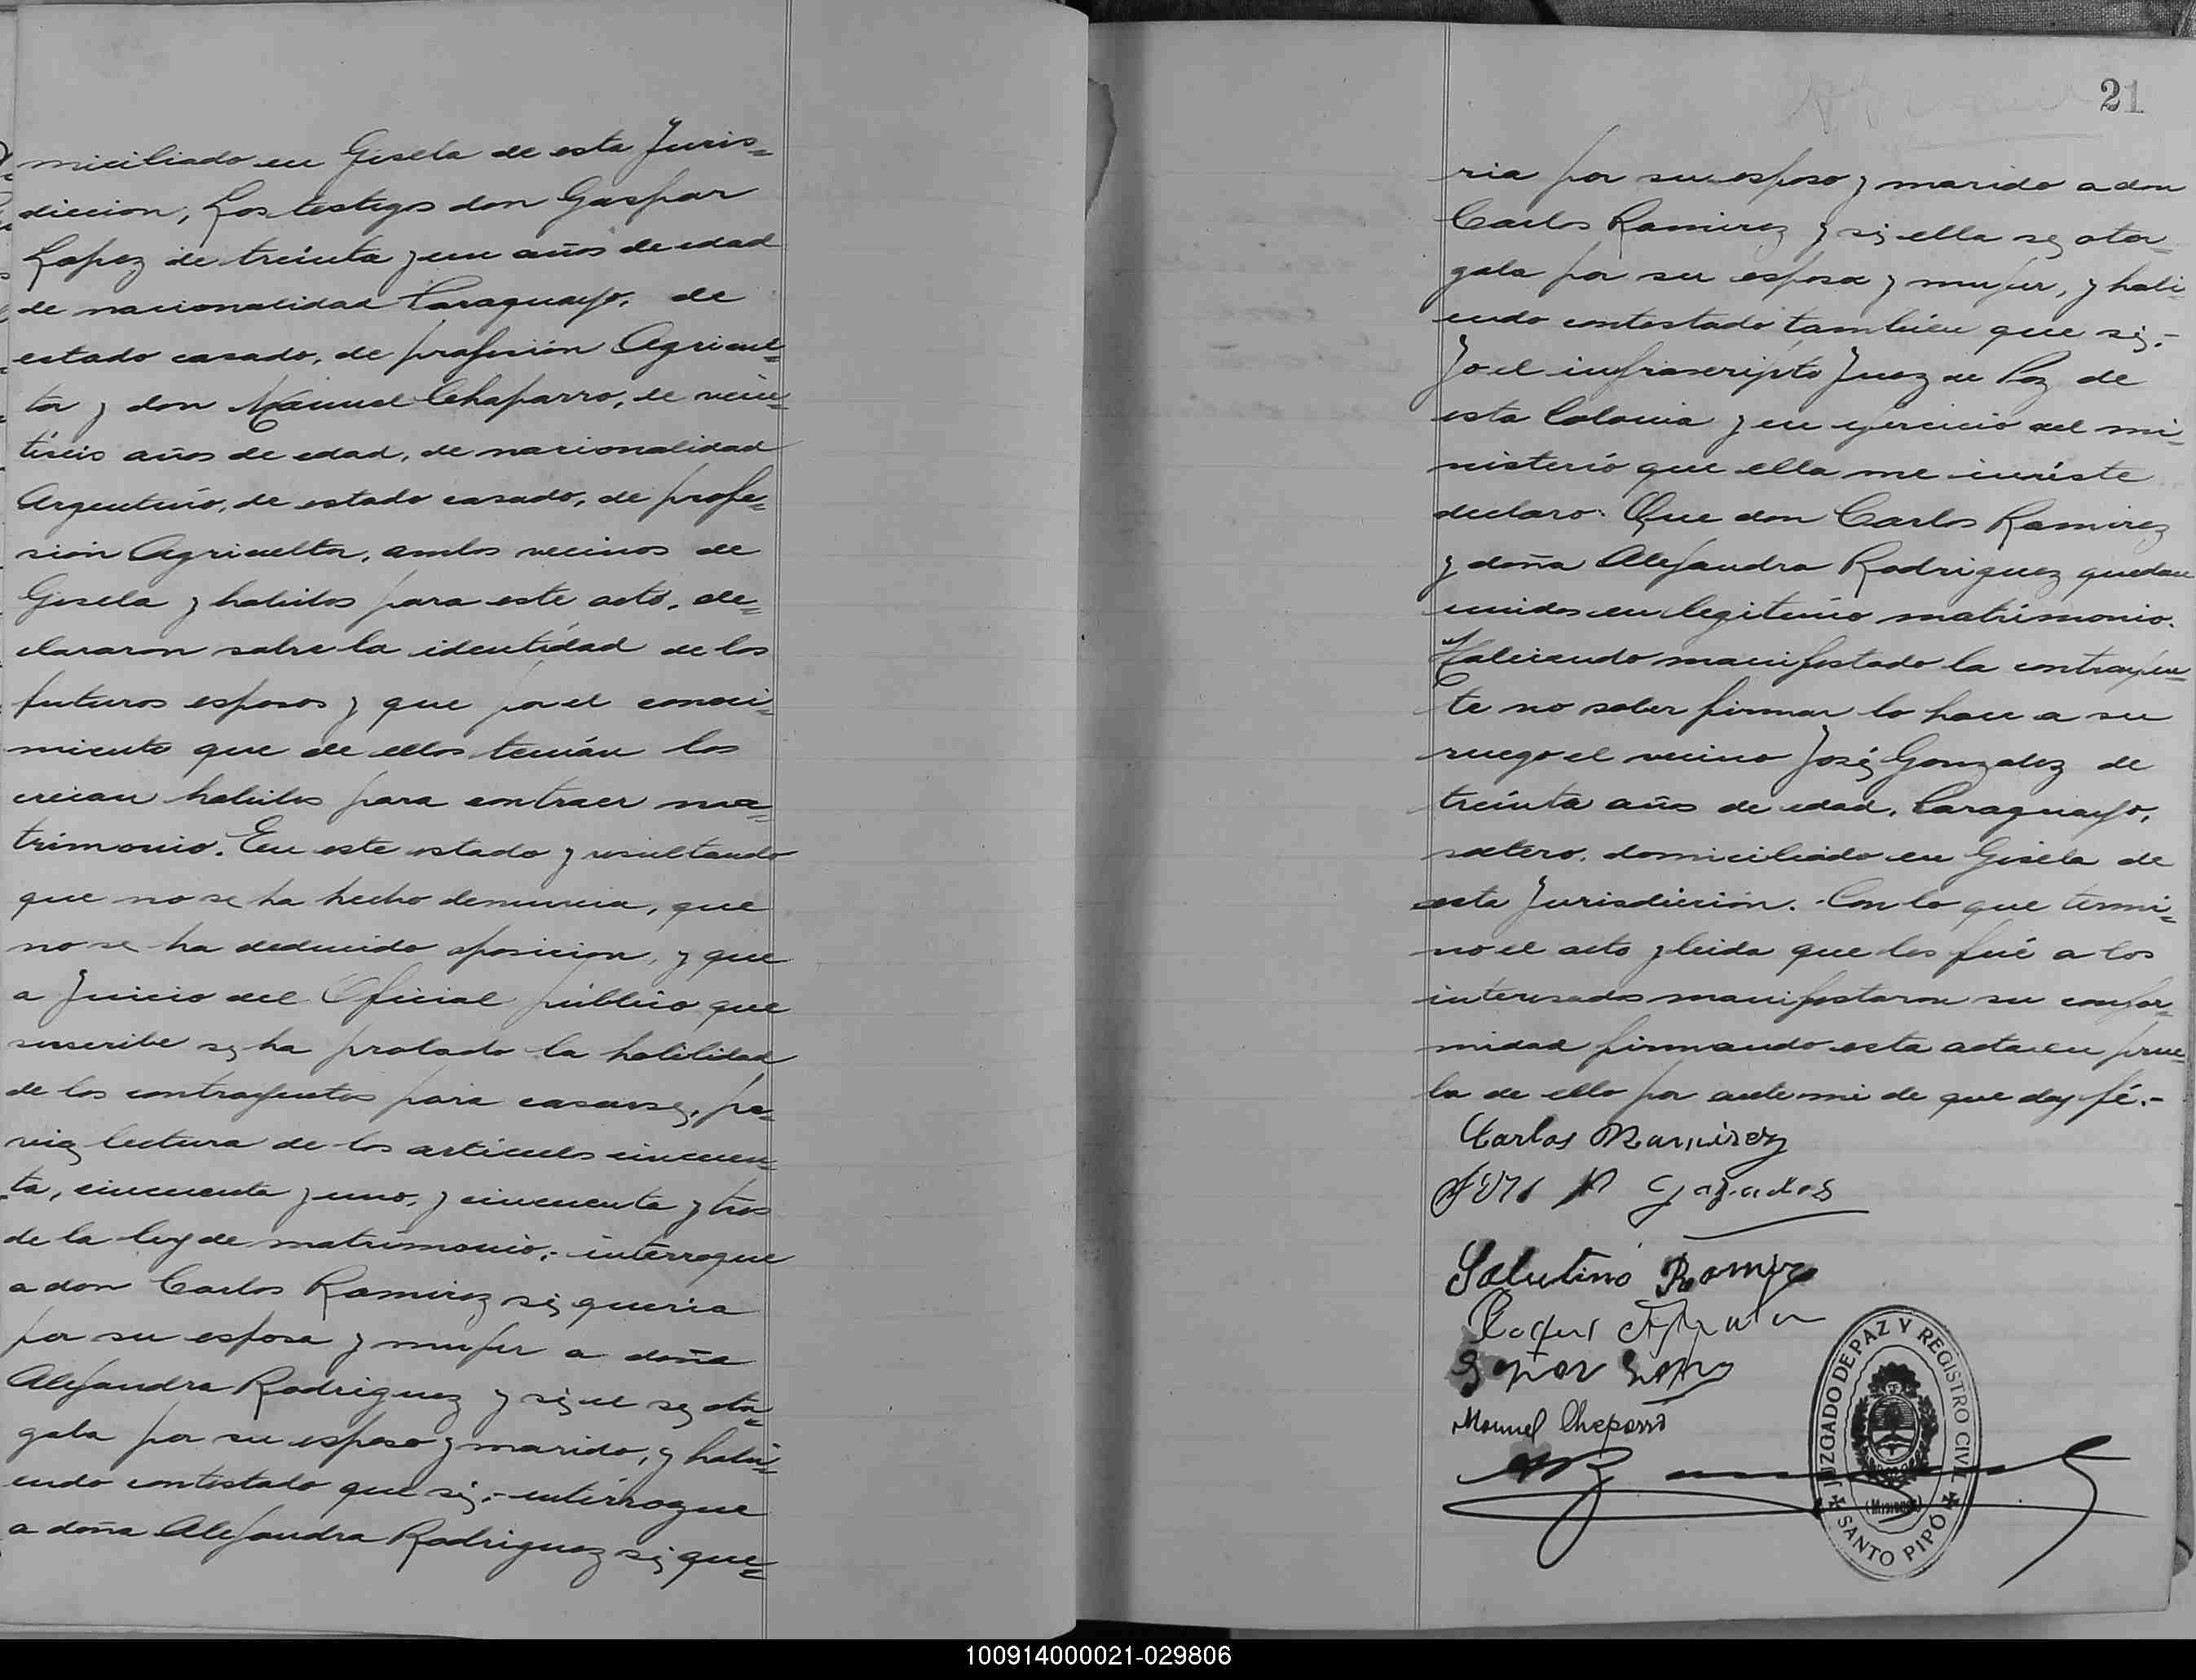 miciliado en Gisela de esta Juris=
diccion, Los testigos don Gaspar
Lopez de treinta y un años de edad
de nacionalidad Paraguayo, de
estado casado, de profesión Agricul=
tor y don Manuel Chaparro, de vein=
tiseis años de edad, de nacionalidad
Argentino, de estado casado, de profe=
sión Agricultor, ambos vecinos de
Gisela y habiles para este acto, de=
clararon sobre la identidad de los
futuros esposos y que por el conoci=
miento que de ellos tenían los
creian habiles para contraer ma=
trimonio. En este estado y resultando
que no se ha hecho denuncia, que
no se ha deducido oposicion, y que
a Juicio del Oficial público que
suscribe se ha probado la habilidad
de los contrayentes para casarse, pre=
via lectura de los articulos cincuen=
ta, cincuenta y uno, y cincuenta y tres
de la ley de matrimonio,- interrogue
a don Carlos Ramirez si queria
por su esposa y mujer a doña
Alejandra Rodriguez y si el se otor=
gaba por su esposo y marido, y habi=
endo contestado que si,- interrogue
a doña Alejandra Rodriguez si que=
21
ria por su esposo y marido a don
Carlos Ramirez y si ella se otor=
gaba por su esposa y mujer, y habi=
endo contestado también que si,-
Yo el infrascripto Juez de Paz de
esta Colonia y en ejercicio del mi=
nisterio que ella me inviste
declaro: Que don Carlos Ramirez
y doña Alejandra Rodriguez quedan
unidos en legitimo matrimonio.
Habiendo manifestado la contrayen=
te no saber firmar lo hace a su
ruego el vecino José Gonzalez de
treinta años de edad, Paraguayo,
soltero, domiciliado en Gisela de
esta Jurisdicción. Con lo que termi=
no el acto y leida que les fué a los
interesados manifestaron su confor=
midad firmando esta acta en prue=
ba de ello por ante mi de que doy fé.-
Carlos Ramirez
Salutino Ramirez
Manuel Cheparro
JUZGADO DE PAZ Y REGISTRO CIVIL
(Misiones)
SANTO PIPÓ
100914000021-029806